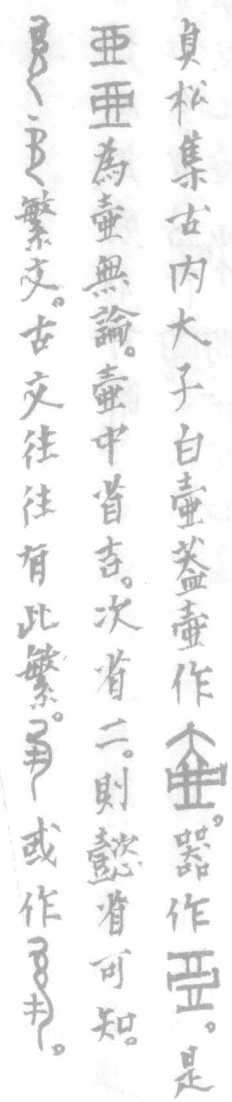 貞松集古內大子白壺蓋壺作。器作。是
為壺無論。壺中省吉。次省二。則懿省可知。
繁文。古文往往有此繁。或作。